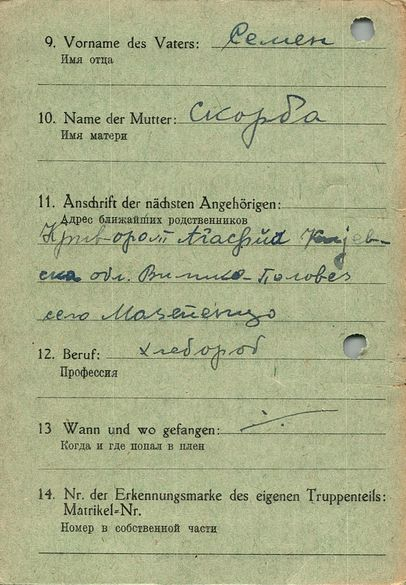 9. Vorname des Vaters: Семен
Имя отца
10. Name der Mutter: Скорба
Имя матери
11. Anschrift der nächsten Angehörigen:
Адрес ближайших родственников
обл.
село
12. Beruf: хлебороб
Профессия
13 Wann und wo gefangen:
Когда и где попал в плен
14. Nr. der Erkennungsmarke des eigenen Truppenteils:
Matrikel=Nr.
Номер в собственной части